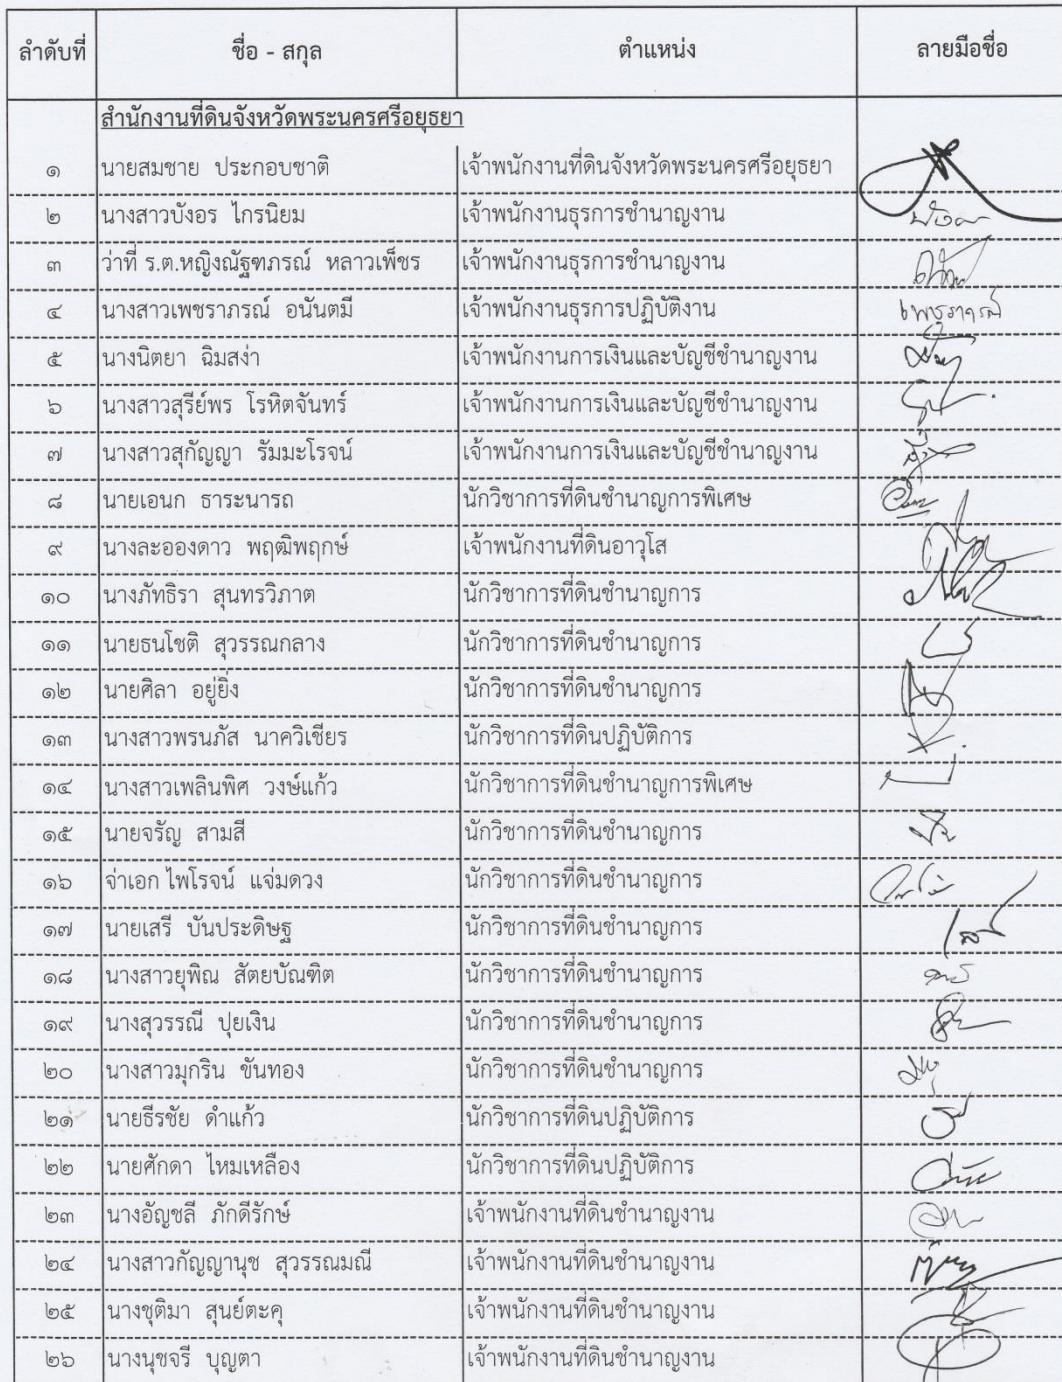 ลำดับที่ ชื่อ - สกุล ตำแหน่ง ลายมือชื่อ
สำนักงานที่ดินจังหวัดพระนครศรีอยุธยา
๑ นายสมชาย ประกอบชาติ เจ้าพนักงานที่ดินจังหวัดพระนครศรีอยุธยา
๒ นางสาวบังอร ไกรนิยม เจ้าพนักงานธุรการชำนาญงาน
๓ ว่าที่ ร.ต.หญิงณัฐฑภรณ์ หลาวเพ็ชร เจ้าพนักงานธุรการชำนาญงาน
๔ นางสาวเพชราภรณ์ อนันตมี เจ้าพนักงานธุรการปฏิบัติงาน เพชราภรณ์
๕ นางนิตยา ฉิมสง่า เจ้าพนักงานการเงินและบัญชีชำนาญงาน
๖ นางสาวสุรีย์พร โรหิตจันทร์ เจ้าพนักงานการเงินและบัญชีชำนาญงาน
๗ นางสาวสุกัญญา รัมมะโรจน์ เจ้าพนักงานการเงินและบัญชีชำนาญงาน
๘ นายเอนก ธาระนารถ นักวิชาการที่ดินชำนาญการพิเศษ
๙ นางละอองดาว พฤฒิพฤกษ์ เจ้าพนักงานที่ดินอาวุโส
๑๐ นางภัทธิรา สุนทรวิภาต นักวิชาการที่ดินชำนาญการ
๑๑ นายธนโชติ สุวรรณกลาง นักวิชาการที่ดินชำนาญการ
๑๒ นายศิลา อยู่ยิ่ง นักวิชาการที่ดินชำนาญการ
๑๓ นางสาวพรนภัส นาควิเชียร นักวิชาการที่ดินปฏิบัติการ
๑๔ นางสาวเพลินพิศ วงษ์แก้ว นักวิชาการที่ดินชำนาญการพิเศษ
๑๕ นายจรัญ สามสี นักวิชาการที่ดินชำนาญการ
๑๖ จ่าเอก ไพโรจน์ แจ่มดวง นักวิชาการที่ดินชำนาญการ
๑๗ นายเสรี บันประดิษฐ นักวิชาการที่ดินชำนาญการ
๑๘ นางสาวยุพิณ สัตยบัณฑิต นักวิชาการที่ดินชำนาญการ
๑๙ นางสุวรรณี ปุยเงิน นักวิชาการที่ดินชำนาญการ
๒๐ นางสาวมุกริน ขันทอง นักวิชาการที่ดินชำนาญการ
๒๑ นายธีรชัย ดำแก้ว นักวิชาการที่ดินปฏิบัติการ
๒๒ นายศักดา ไหมเหลือง นักวิชาการที่ดินปฏิบัติการ
๒๓ นางอัญชลี ภักดีรักษ์ เจ้าพนักงานที่ดินชำนาญงาน
๒๔ นางสาวกัญญานุช สุวรรณมณี เจ้าพนักงานที่ดินชำนาญงาน
๒๕ นางชุติมา สุนย์ตะคุ เจ้าพนักงานที่ดินชำนาญงาน
๒๖ นางนุชจรี บุญตา เจ้าพนักงานที่ดินชำนาญงาน